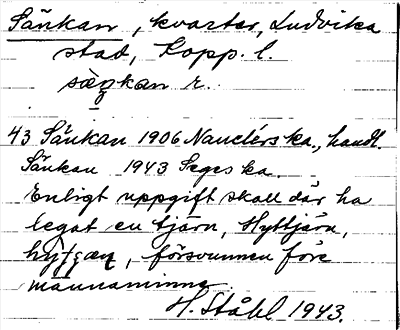 Sänkan, kvarter, Ludvika
stad, Kopp. l.
sàŋkan r.
43 Sänkan 1906 Nauclérs ka., handl.
Sänkan 1943 Seges ka.
Enligt uppgift skall där ha
legat en tjärn, Hyttjärn,
försvunnen före
mannaminne.
H. Ståhl 1943.